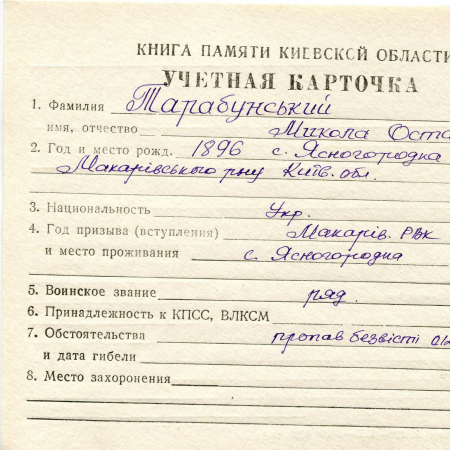 КНИГА ПАМЯТИ КИЕВСКОЙ ОБЛАСТИ
УЧЕТНАЯ КАРТОЧКА
1. Фамилия Тарабунський
имя, отчество Микола Оста
2. Год и место рожд. 1896 с. Ясногородка
Макарівського р-ну Київ. обл.
3. Национальность Укр.
4. Год призыва (вступления) Макарів. РВК
и место проживания с. Ясногородка
5. Воинское звание ряд.
6. Принадлежность к КПСС, ВЛКСМ
7. Обстоятельства пропав безвісті
и дата гибели
8. Место захоронения